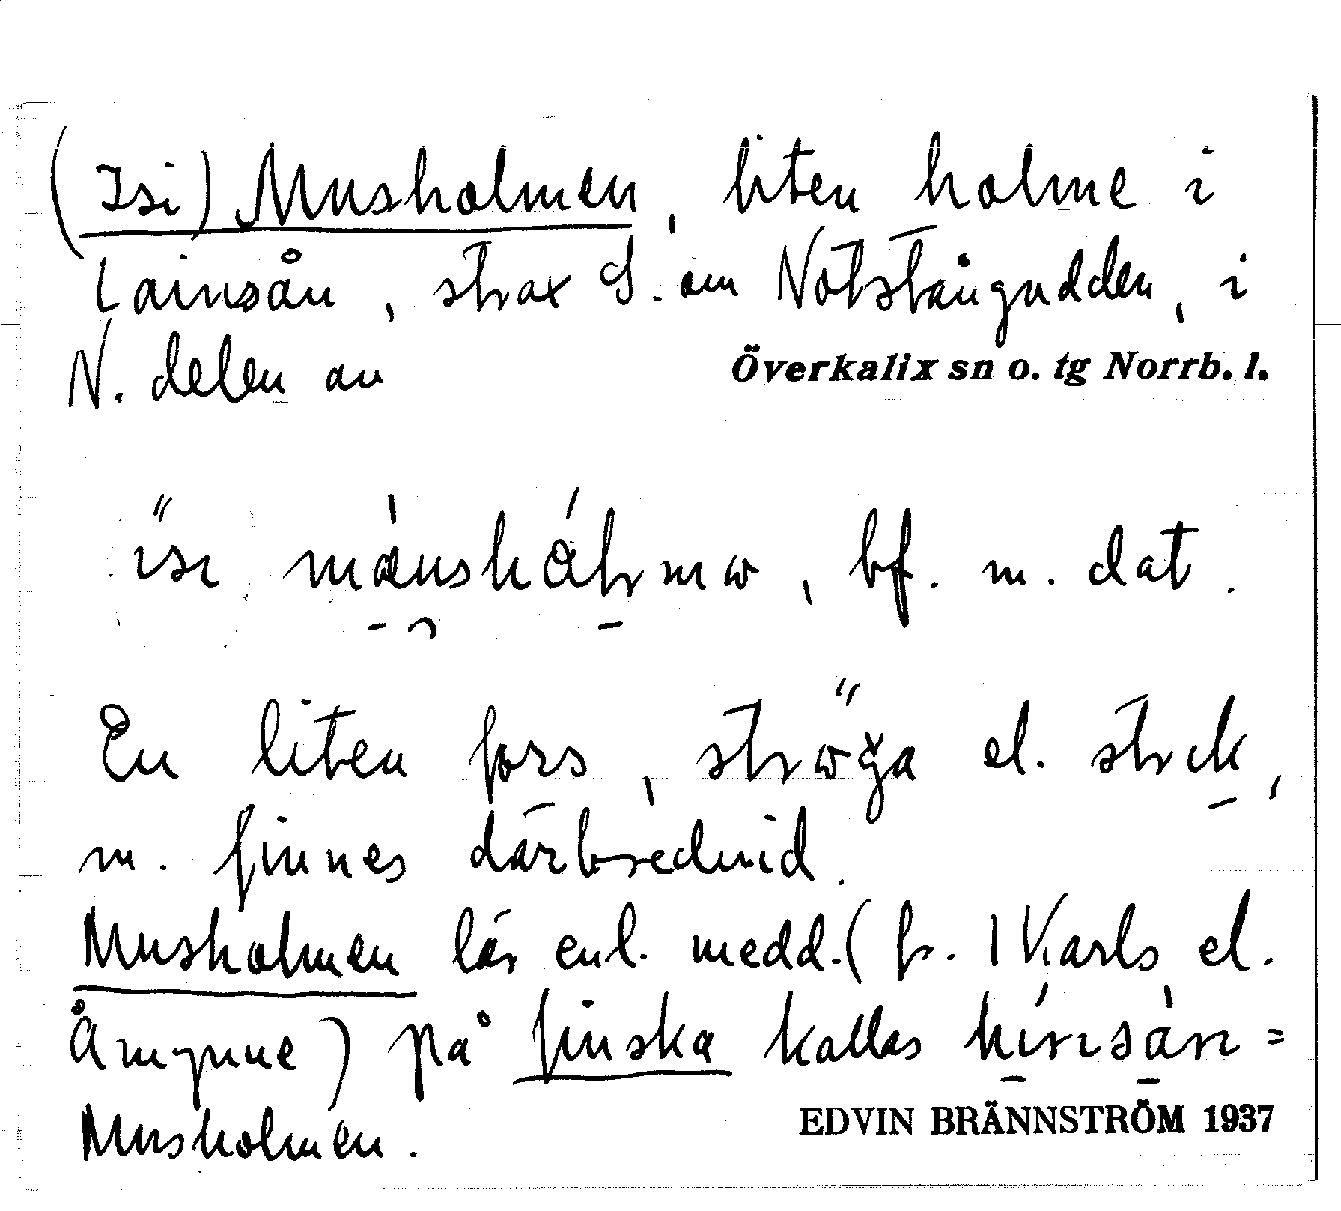 (Isi) Musholmen, liten holme i
Lainsån, strax S. om Notstångudden, i
N. delen av Överkalix sn o. tg Norrb. l.
isi , bf. m. dat.
En liten fors, el. strck,
m. finnes därbredvid.
Musholmen lär enl. medd. (fr. Karls el.
) på finska kallas hinsàn =
Musholmen.
EDVIN BRÄNNSTRÖM 1937